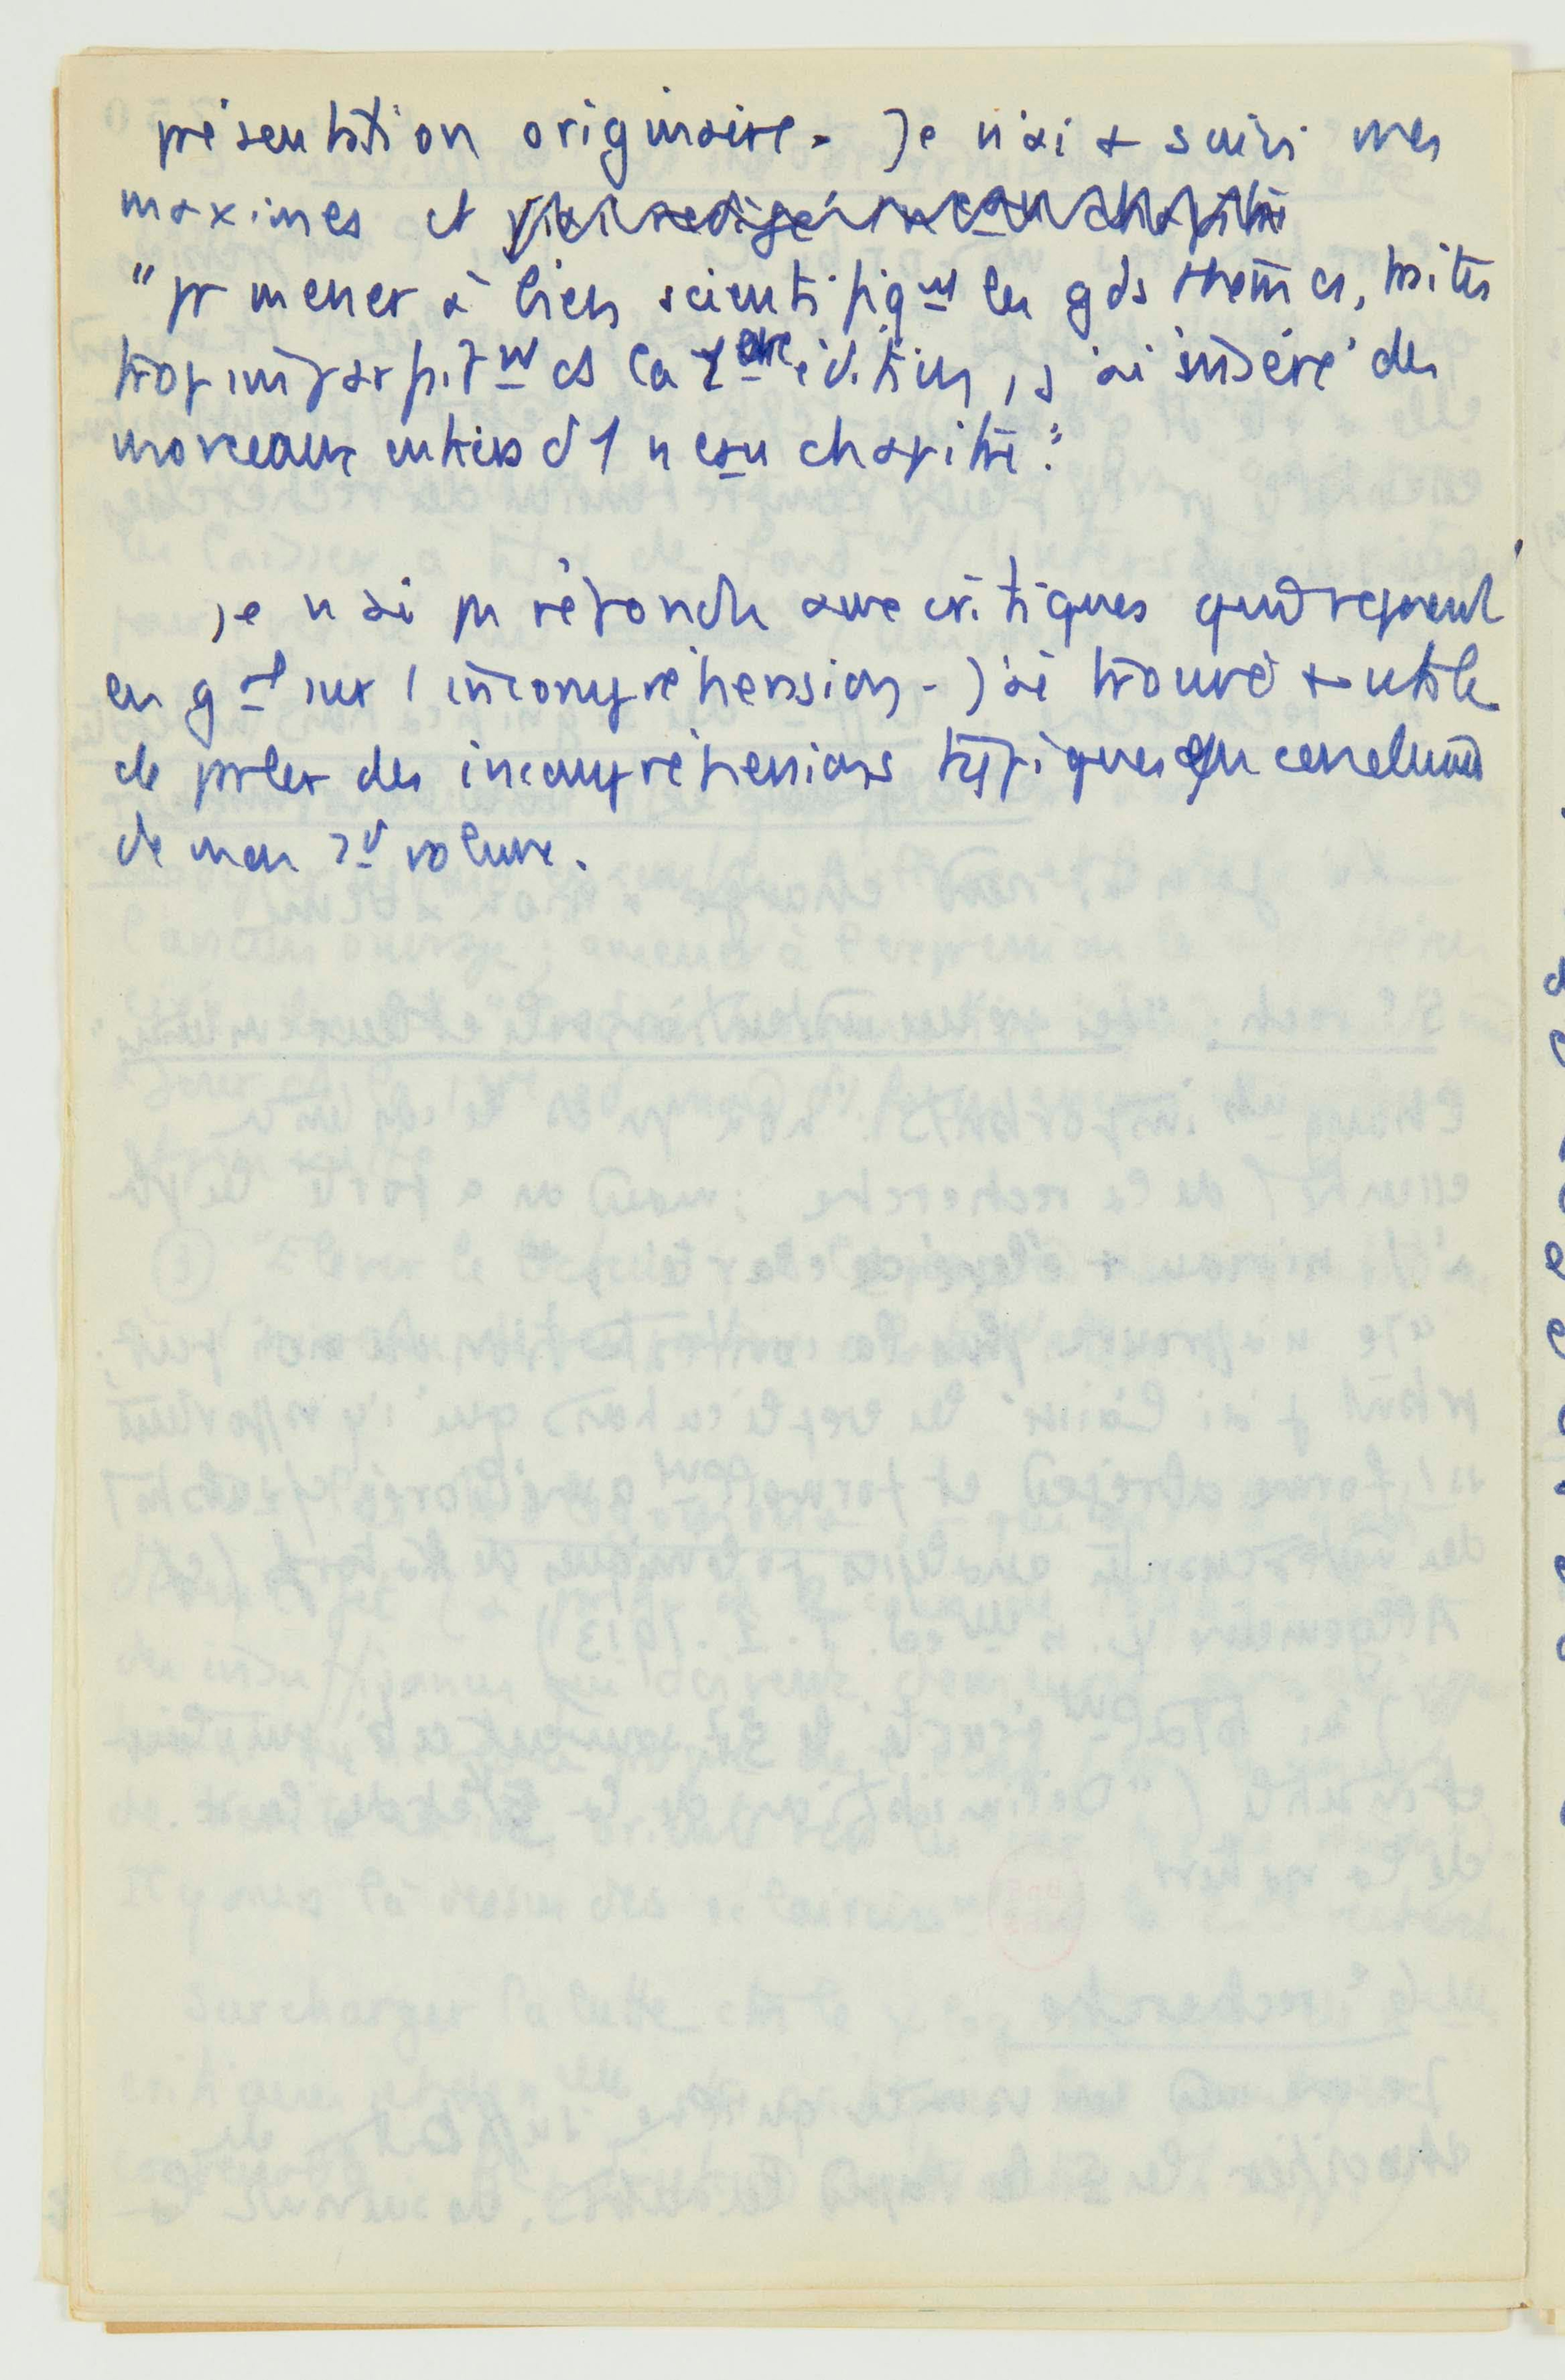 présentation originaire. Je n'ai + suivi mes
maximes et j'ai rédigé 1 neau chapitre
"pr mener à bien scientifiqnt les gds thèmes, traités
trop imparfaitnt ds la 1ère édition, j'ai inséré des
morceaux entiers d 1 neau chapitre."
Je n'ai pu répondre aux critiques qui reposent
en gal sur l'incompréhension. J'ai trouvé + utile
de parler des incompréhensions typiques en
de mon 2d volume.